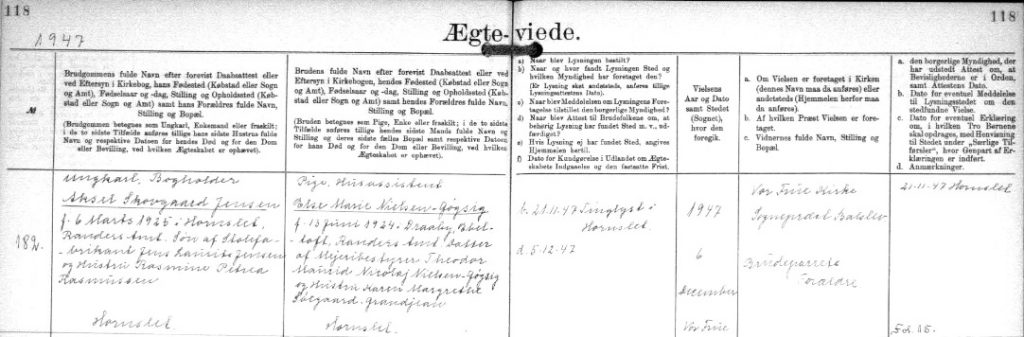 118
118
1947
Ægte-viede.
№
Brudgommens fulde Navn efter forevist Daabsattest eller
Eftersyn i Kirkebog, hans Fødested (Købstad eller Sogn
og Amt), Fødselsaar og -dag, Stilling og Opholdssted (Køb-
stad eller Sogn og Amt) samt hans Forældres fulde Navn,
Stilling og Bopæl.
(Brudgommen betegnes som Ungkarl, Enkemand eller fraskilt;
i de to sidste Tilfælde anføres tillige hans sidste Hustrus fulde
Navn og respektive Datoen for hendes Død og for den Dom
eller Bevilling, ved hvilken Ægteskabet er ophævet).
Brudens fulde Navn efter forevist Daabsattest eller ved
Eftersyn i Kirkebogen, hendes Fødested (Købstad eller Sogn
og Amt), Fødselsaar og -dag, Stilling og Opholdssted (Køb-
stad eller Sogn og Amt) samt hendes Forældres fulde Navn,
Stilling og Bopæl.
(Bruden betegnes som Pige, Enke eller fraskilt; i de to sidste
Tilfælde anføres tillige hendes sidste Mands fulde Navn og
Stilling og deres sidste fælles Bopæl samt respektive Datoen
for hans Død og for den Dom eller Bevilling, ved hvilken
Ægteskabet er ophævet).
a) Naar blev Lysningen bestilt?
b) Naar og hvor fandt Lysningen Sted og
hvilken Myndighed har foretaget den?
(Er Lysning skat andetsteds, anføres tillige
Lysningsattestens Dato).
c) Naar blev Meddelelsen om Lysningens Fore-
tagelse tilstillet den borgerlige Myndighed?
d) Naar blev Attest til Brudefolkene om, at
behørig Lysning har fundet Sted m. v., ud-
færdiget?
e) Hvis Lysning ej har fundet Sted, angives
Hjemmelen hertil.
f) Dato for Kundgørelse i Udlandet om Ægte-
skabets Indgaaelse og den fastsatte Frist.
Vielsens
Aar og Dato
samt Stedet
(Sognet),
hvor den
foregik.
a. Om Vielsen er foretaget i Kirken
(dennes Navn maa da anføres) eller
andetsteds (Hjemmelen herfor maa
da anføres).
b. Af hvilken Præst Vielsen er fore-
taget.
c. Vidnernes fulde Navn, Stilling og
Bopæl.
a. den borgerlige Myndighed, der
har udstedt Attest om, at
Bevislighederne er i Orden,
samt Attestens Dato.
b. Dato for eventuel Meddelelse
til Lysningsstedet om den
stedfundne Vielse.
c. Dato for eventuel Erklæring
om, i hvilken Tro Børnene
skal opdrages, med Henvisning
til Stedet under „Særlige Til-
førsler“, hvor Genpart af Er-
klæringen er indført.
d. Anmærkninger.
182.
Ungkarl, Bogholder
Aksel Skovgaard Jensen
f. 6 Marts 1925 i Hornslet,
Randers Amt. Søn af Stolefa-
brikant Jens Laurits Jensen
og Hustru Rasmine Petrea
Rasmussen
Hornslet
Pige, Husassistent
Else Marie Nielsen-Gøgsig
f. 15 Juni 1924 Draaby, Ebel-
toft, Randers Amt, Datter
af Mejeribestyrer Theodor
Nicolaj Nielsen-Gøgsig
og Hustru Karen Margrethe
Søegaard Grandjean
Hornslet.
b. 21.11.47 Tinglyst i
Hornslet.
d. 5.12.47
1947
6
December
Vor Frue
Vor Frue Kirke
Sognepræst Balslev
Brudeparrets
Forældre
21.11.47 Hornslet